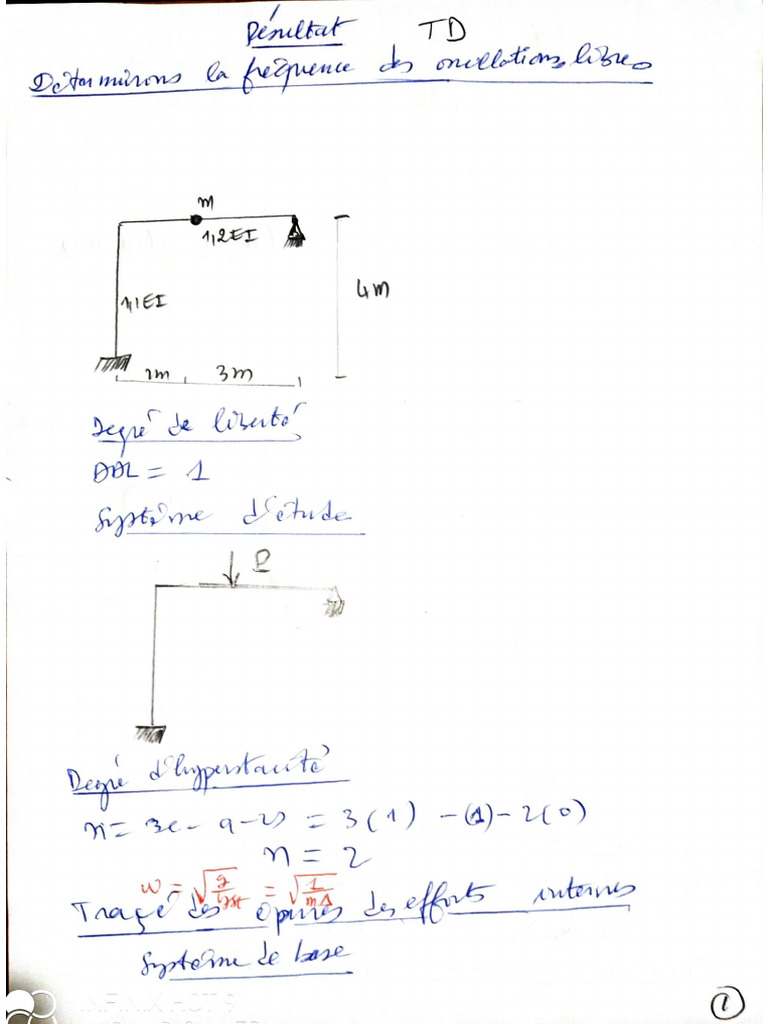 Résultat TD
Déterminons la fréquence des oscillations libres
m
1,2EI
4m
1,1EI
2m 3m
Degré de liberté
DDL = 1
Système d'étude
P
Degré d'hyperstaticité
n = 3c - a - 2s = 3(1) - (1) - 2(0)
n = 2
w = √g/yst = √1/mΔ
Traçé des épures des efforts internes
Système de base
1